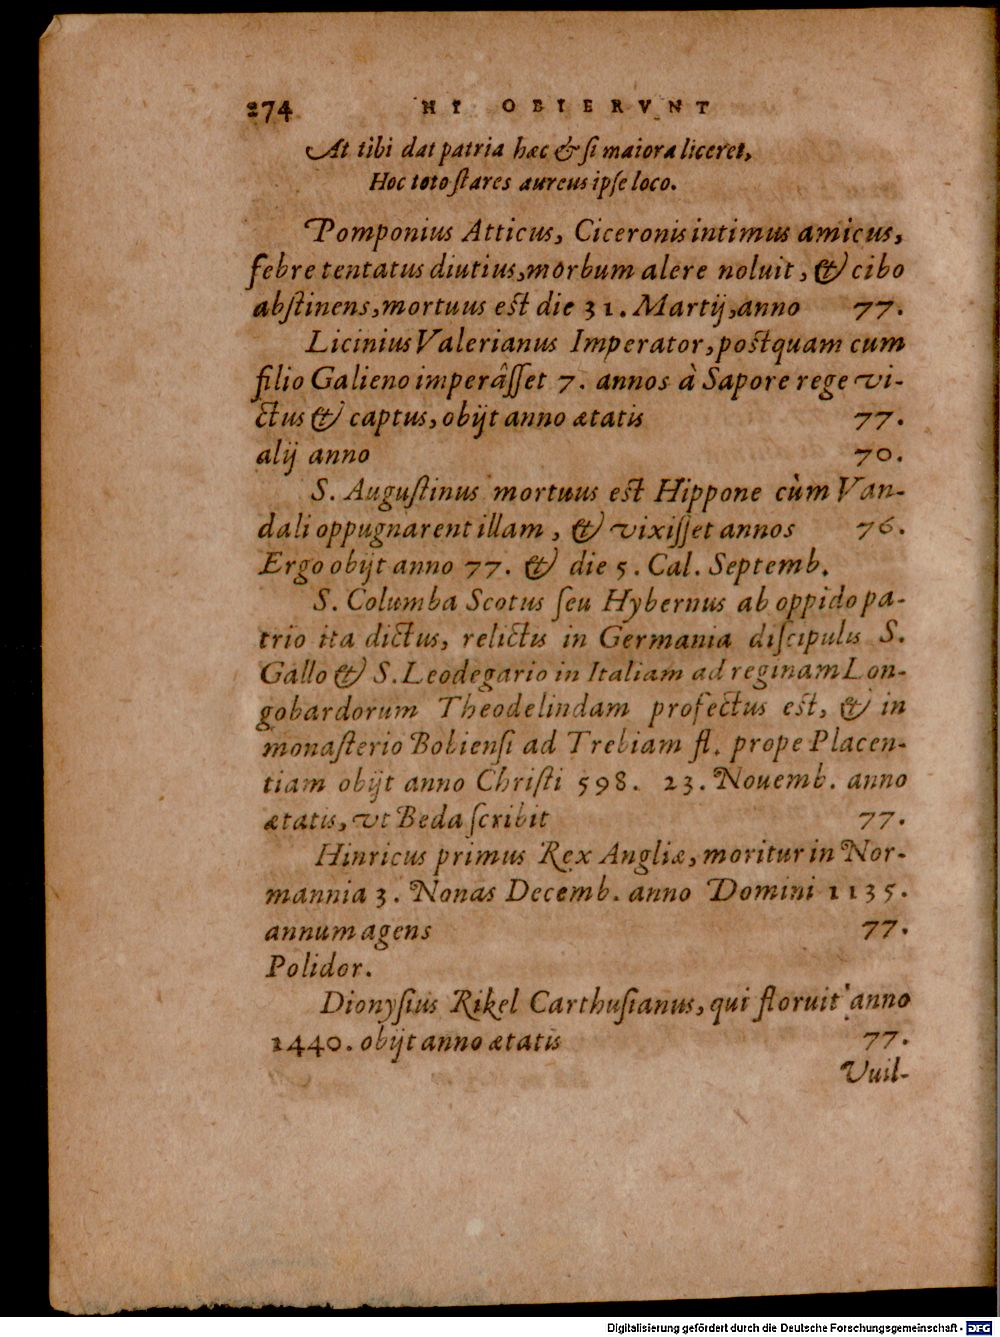 274 HI OBIERVNT
At tibi dat patria hæc & ſi maiora liceret,
Hoc toto ſtares aureus ipſe loco.
Pomponius Atticus, Ciceronis intimus amicus,
febre tentatus diutius, morbum alere noluit, & cibo
abſtinens, mortuus eſt die 31. Martij, anno 77.
Licinius Valerianus Imperator, poſtquam cum
filio Galieno imperâſſet 7. annos à Sapore rege vi-
ctus & captus, obijt anno ætatis 77.
alij anno 70.
S. Auguſtinus mortuus eſt Hippone cùm Van-
dali oppugnarent illam, & vixiſſet annos 76.
Ergo obijt anno 77. & die 5. Cal. Septemb.
S. Columba Scotus ſeu Hybernus ab oppido pa-
trio ita dictus, relictis in Germania diſcipulis S.
Gallo & S. Leodegario in Italiam ad reginam Lon-
gobardorum Theodelindam profectus eſt, & in
monaſterio Bobienſi ad Trebiam fl. prope Placen-
tiam obijt anno Chriſti 598. 23. Nouemb. anno
ætatis, vt Beda ſcribit 77.
Hinricus primus Rex Angliæ, moritur in Nor-
mannia 3. Nonas Decemb. anno Domini 1135.
annum agens 77.
Polidor.
Dionyſius Rikel Carthuſianus, qui floruit anno
1440. obijt anno ætatis 77.
Vuil-
Digitalisierung gefördert durch die Deutsche Forschungsgemeinschaft - DFG